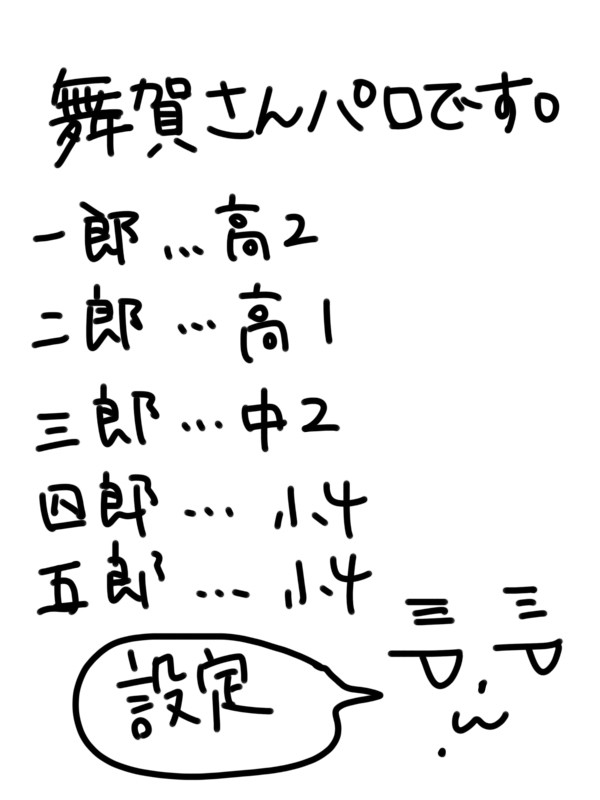 舞賀さんパロです。
一郎…高2
二郎…高1
三郎…中2
四郎…小4
五郎…小4
設定